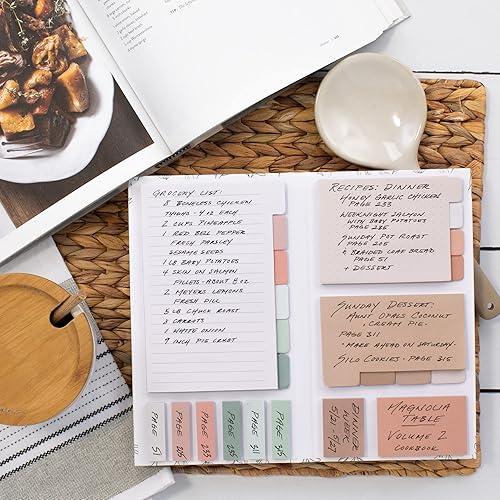 GROCERY LIST:
8 BONELESS CHICKEN
THIGHS - 4 OZ EACH
2 CUPS PINEAPPLE
1 RED BELL PEPPER
FRESH PARSLEY
SESAME SEEDS
1 LB BABY POTATOES
4 SKIN ON SALMON
FILLETS - ABOUT 8 OZ
2 MEYERS LEMONS
FRESH DILL
5 LB CHUCK ROAST
8 CARROTS
1 WHITE ONION
9 INCH PIE CRUST
RECIPES: DINNER
HONEY GARLIC CHICKEN
PAGE 233
WEEKNIGHT SALMON
WITH BABY POTATOES
PAGE 235
SUNDAY POT ROAST
PAGE 205
& BRAIDED LOAF BREAD
PAGE 51
+ DESSERT
SUNDAY DESSERT:
AUNT OPALS COCONUT
CREAM PIE.
PAGE 311
• MAKE AHEAD ON SATURDAY •
SILO COOKIES • PAGE 315
PAGE 51
PAGE 205
PAGE 233
PAGE 235
PAGE 311
PAGE 315
DINNER
WEEK
5/21-5/27
MAGNOLIA
TABLE
VOLUME 2
COOKBOOK